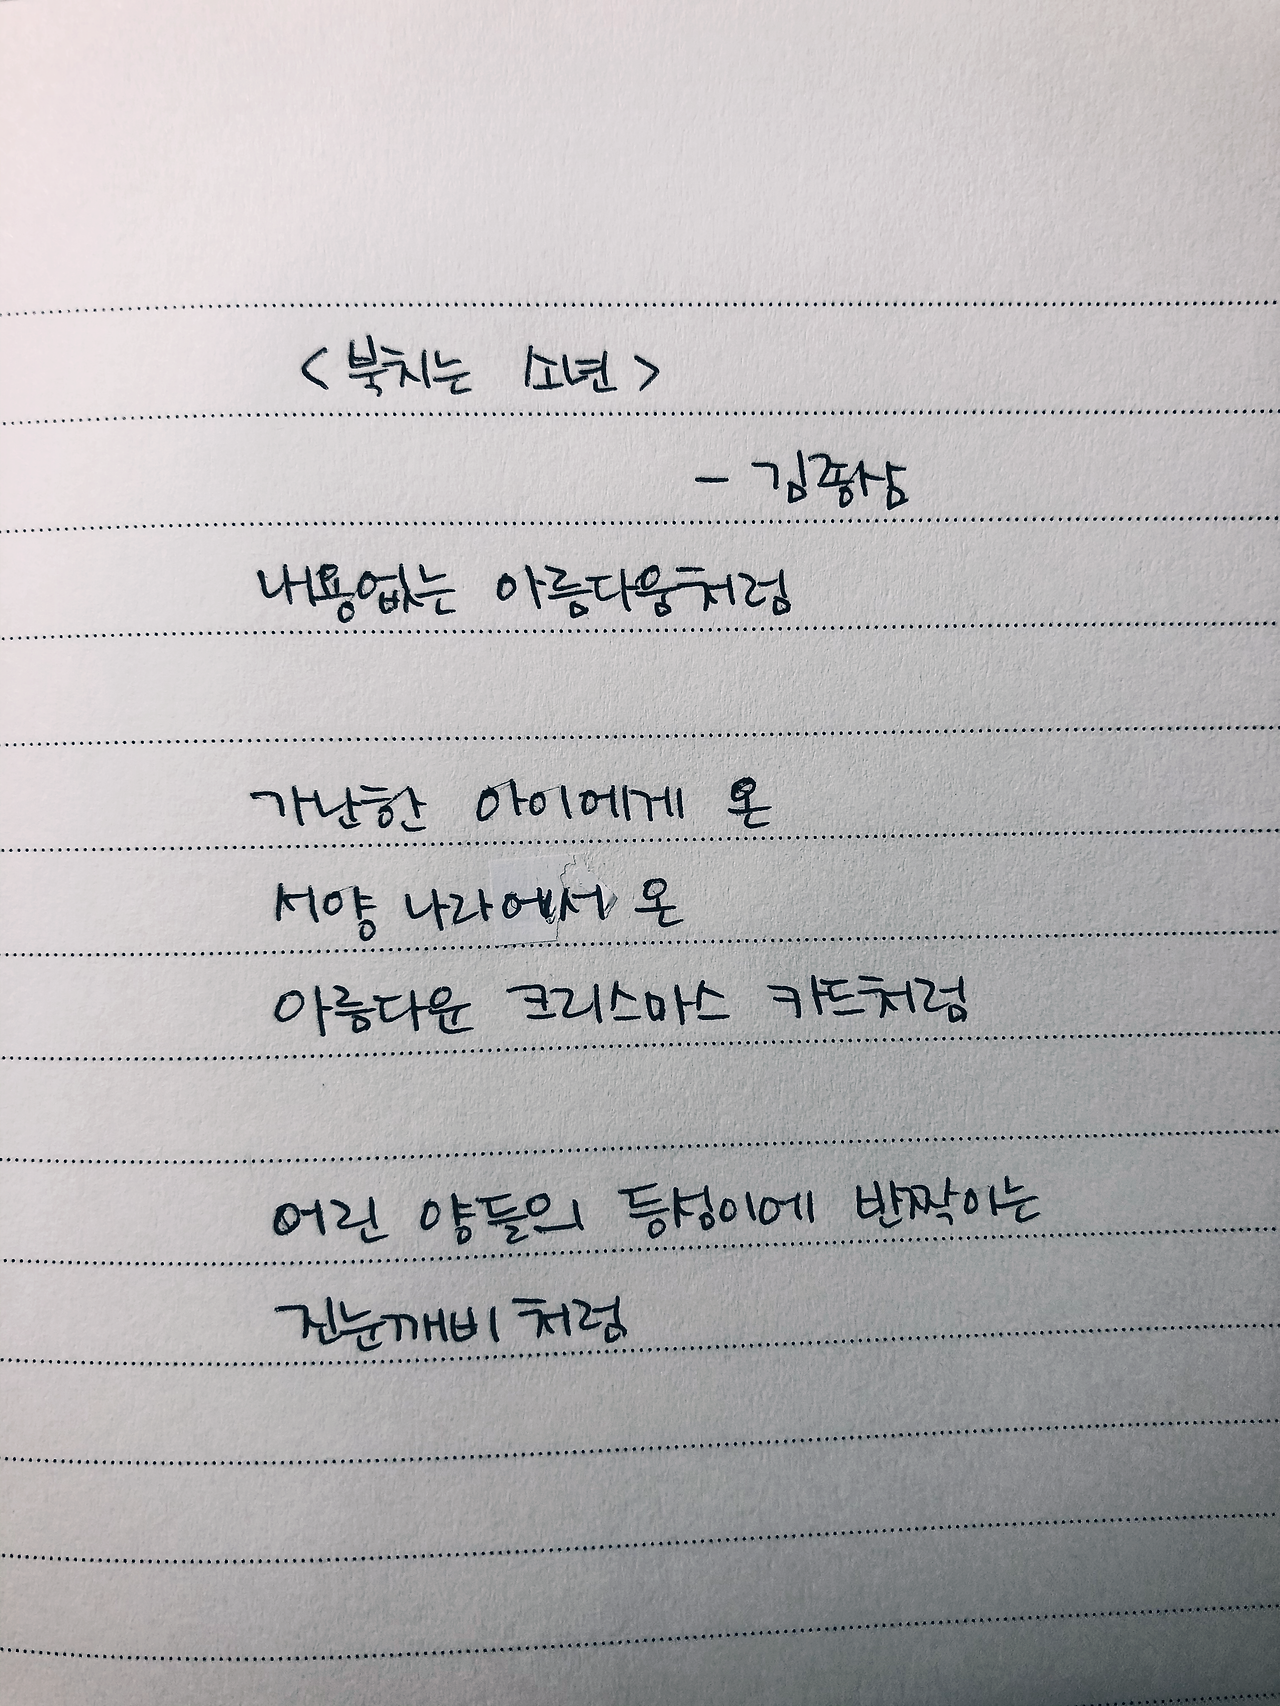 <북치는 소년>
- 김종삼
내용없는 아름다움처럼
가난한 아이에게 온
서양 나라에서 온
아름다운 크리스마스 카드처럼
어린 양들의 등성이에 반짝이는
진눈깨비처럼